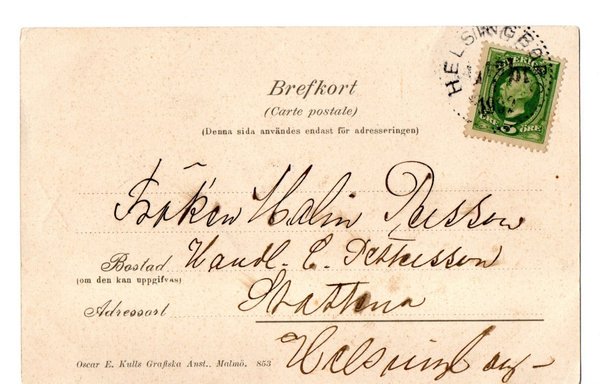 HELSINGBORG
SVERIGE
5 ÖRE
Brefkort
(Carte postale)
(Denna sida användes endast för adresseringen)
Fröken Malin Persson
Bostad Handl. C. Petterson
(om den kan uppgifvas)
Adressort
Helsingborg
Oscar E. Kulls Grafiska Anst., Malmö. 853